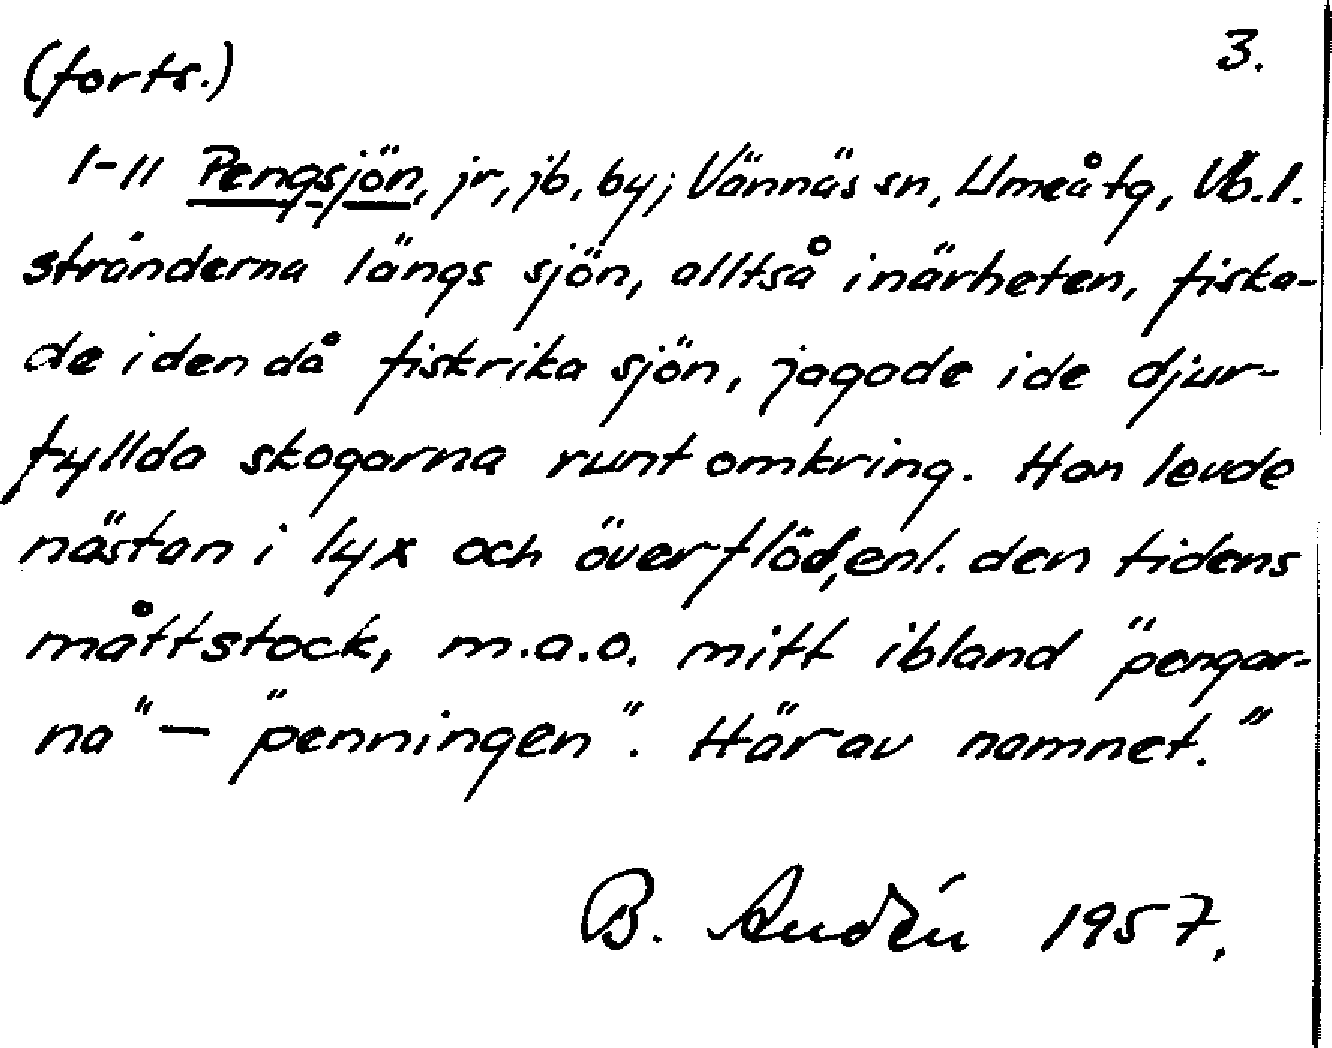 (forts.) 3.
I-II Pengsjön, jr, jb, by; Vännäs sn, Umeå tg, Vb. l.
stränderna längs sjön, alltså i närheten, fiska-
de i den då fiskrika sjön, jagade i de djur-
fyllda skogarna runt omkring. Han levde
nästan i lyx och överflöd, enl. den tidens
måttstock, m.a.o. mitt ibland "pengar-
na" – "penningen". Härav namnet."
B. Audén 1957.